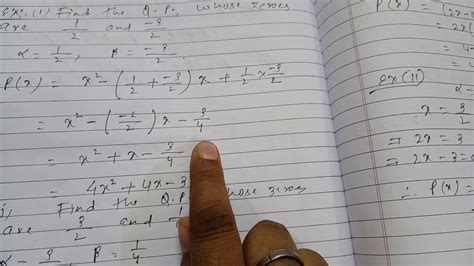 Ex: (i) Find the Q.P. whose zeros
are 1/2 and -3/2
α = 1/2, β = -3/2
P(x) = x² - (1/2 + -3/2) x + 1/2 × -3/2
= x² - (-2/2) x - 3/4
= x² + x - 3/4
= 4x² + 4x - 3
Find the Q.P. whose zeros
are 3/2 and
β = 1/4
P(x) =
Ex (ii)
x = 3/2
⇒ 2x = 3
⇒ 2x - 3 =
∴ P(x) =